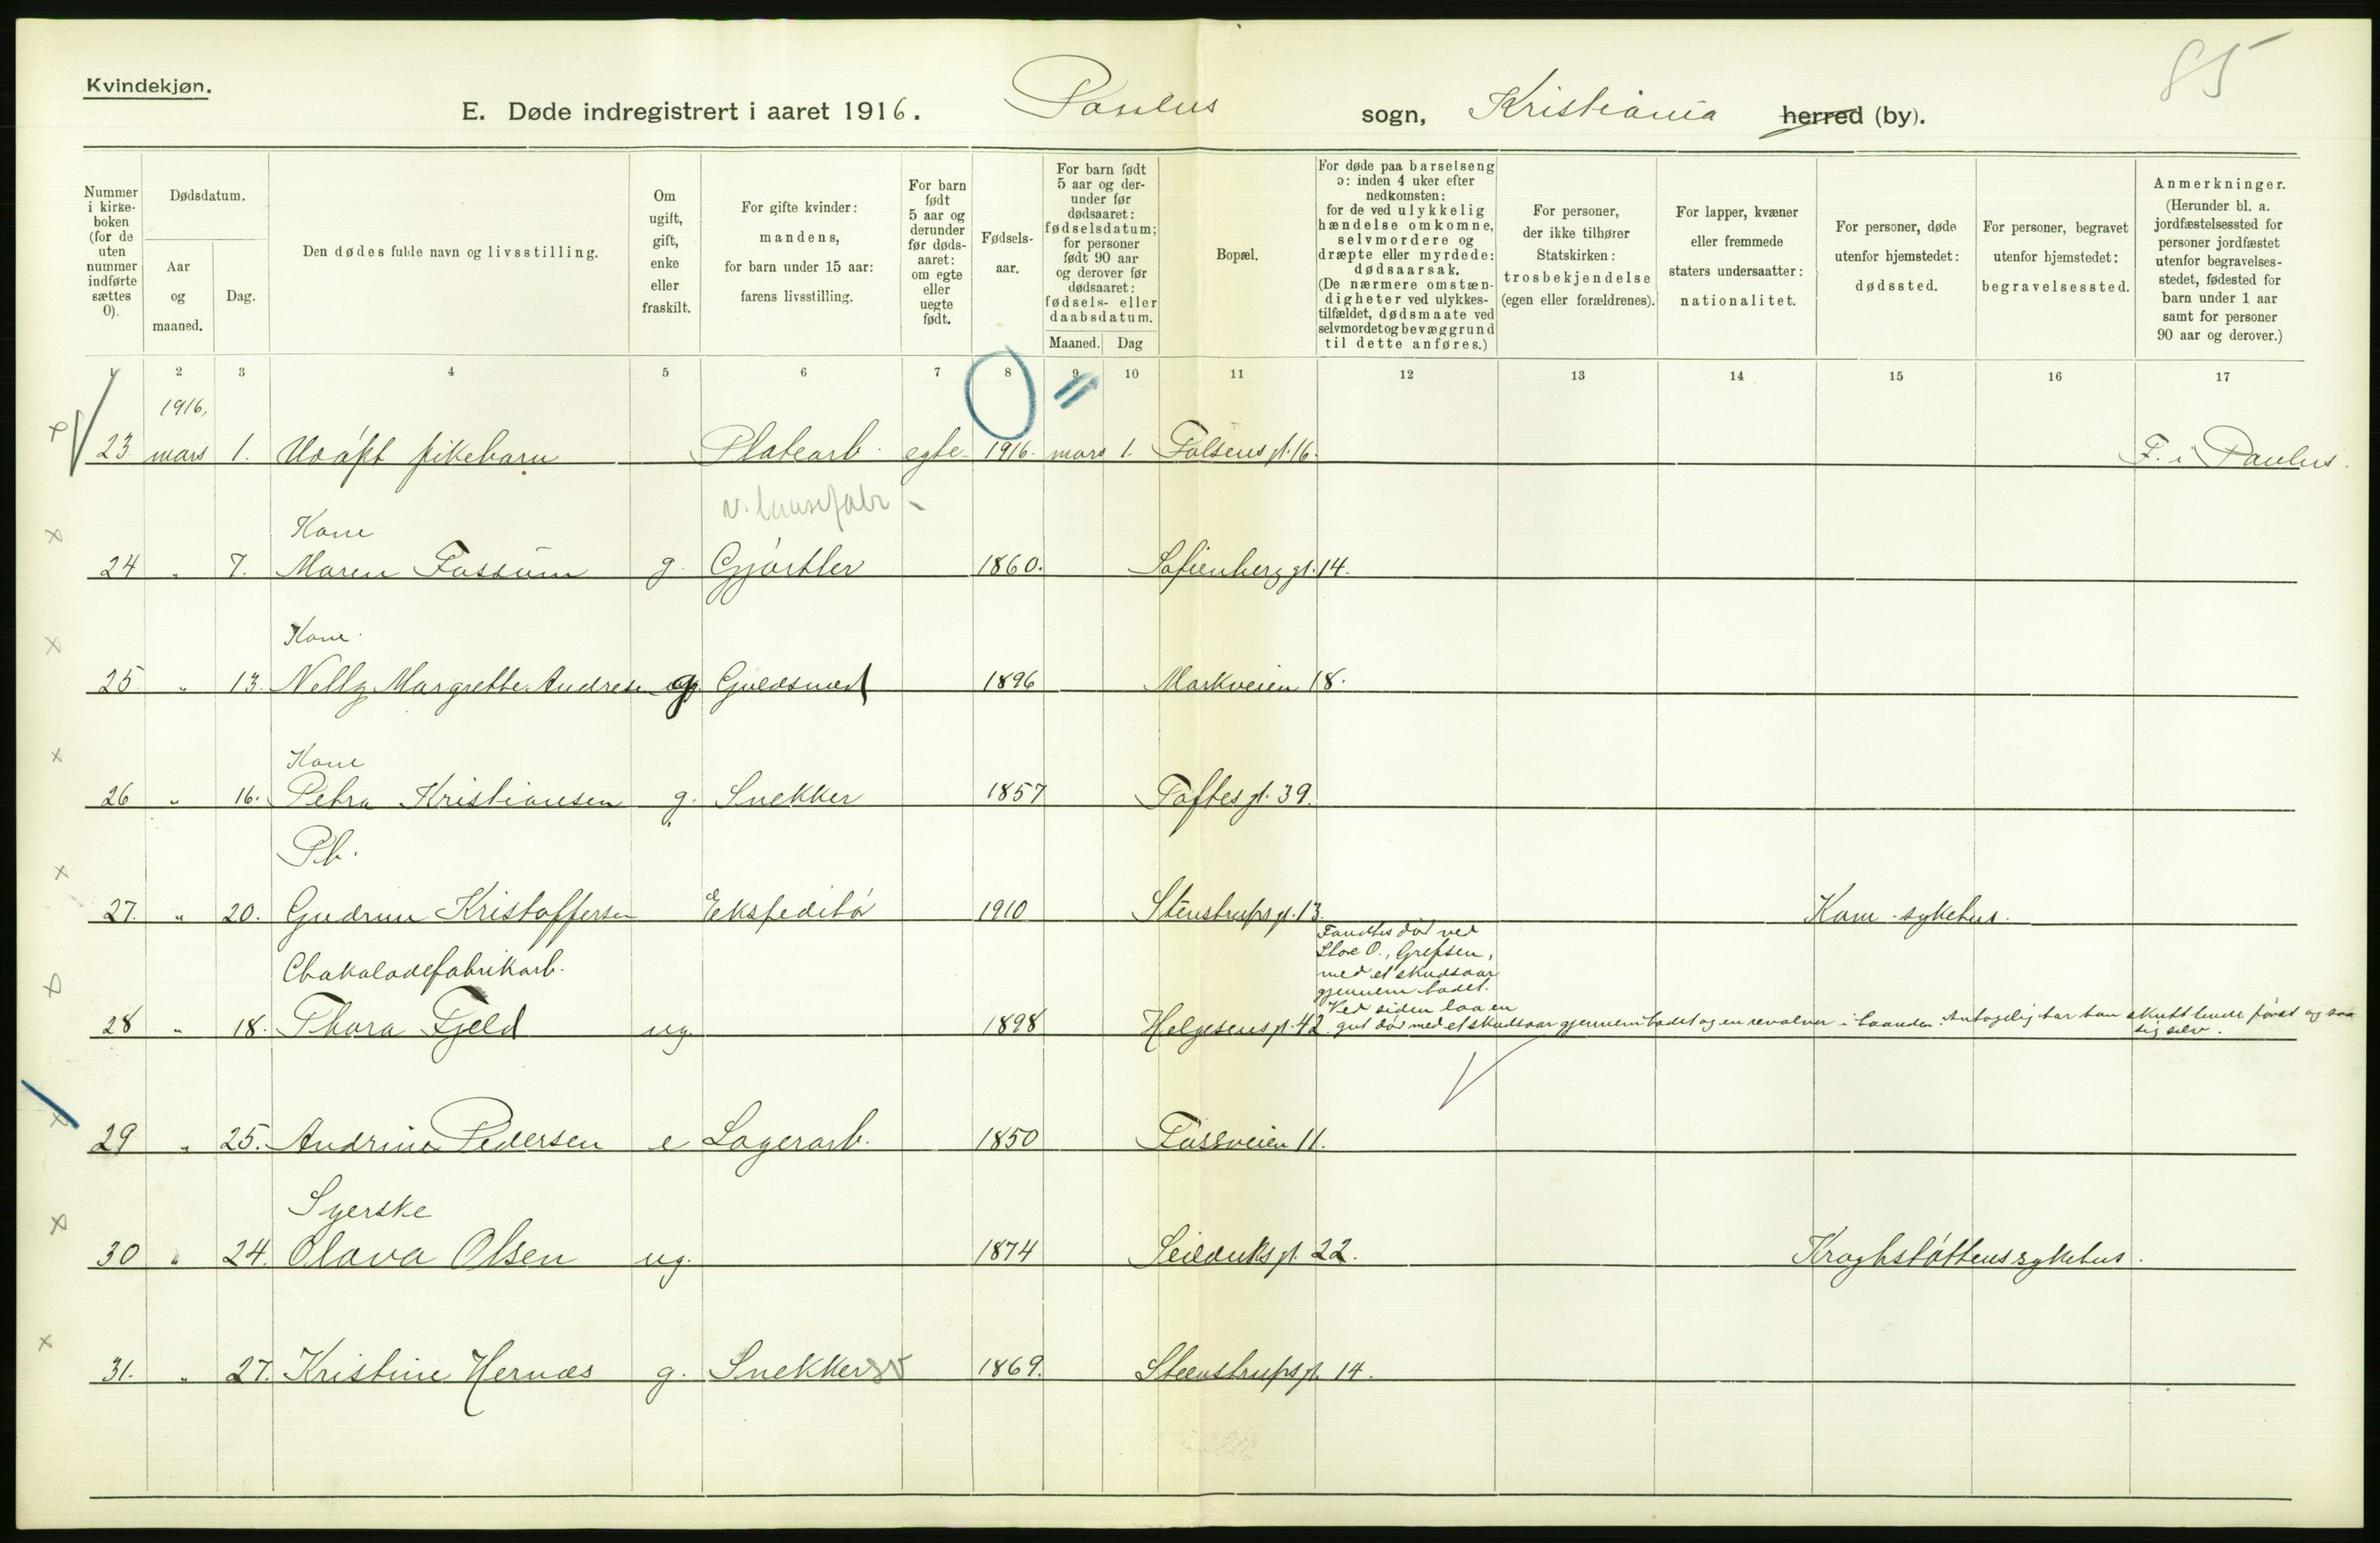 85
Kvindekjøn.
E. Døde indregistrert i aaret 1916. Paulus sogn, Kristiania herred (by).
Nummer i kirke- boken (for de uten nummer indførte sættes 0).
Dødsdatum.
Aar og maaned.
Dag.
Den dødes fulde navn og livsstilling.
Om ugift, gift, enke eller fraskilt.
For gifte kvinder: mandens, for barn under 15 aar: farens livsstilling.
For barn født 5 aar og derunder før døds- aaret: om egte eller uegte født.
Fødsels- aar.
For barn født 5 aar og der- under før dødsaaret: fødselsdatum; for personer født 90 aar og derover før dødsaaret: fødsels- eller daabsdatum.
Maaned. Dag
Bopæl.
For døde paa barselseng ɔ: inden 4 uker efter nedkomsten: for de ved ulykkelig hændelse omkomne, selvmordere og dræpte eller myrdede: dødsaarsak. (De nærmere omstæn- digheter ved ulykkes- tilfældet, dødsmaate ved selvmordet og bevæggrund til dette anføres.)
For personer, der ikke tilhører Statskirken: trosbekjendelse (egen eller forældrenes).
For lapper, kvæner eller fremmede staters undersaatter: nationalitet.
For personer, døde utenfor hjemstedet: dødssted.
For personer, begravet utenfor hjemstedet: begravelsessted.
Anmerkninger. (Herunder bl. a. jordfæstelsessted for personer jordfæstet utenfor begravelses- stedet, fødested for barn under 1 aar samt for personer 90 aar og derover.)
1 2 3 4 5 6 7 8 9 10 11 12 13 14 15 16 17
1916.
23 mars 1. Udøpt pikebarn Platearb. egte 1916. mars 1. Falsens gt. 16. F. i Paulus.
Kone
24 " 7. Maren Fossum g. Gjørtler 1860. Sofienberg gt. 14.
Kone
25 " 13. Nelly Margrethe Andresen g. Guldsmed 1896 Markveien 18.
Kone
26 " 16. Petra Kristiansen g. Snekker 1857 Toftes gt. 39.
Pb.
27. " 20. Gudrun Kristoffersen Ekspeditør 1910 Stenstrups gt. 13. Kom. sykehus.
Chokoladefabrikarb.
Fandtes død ved
Store O., Grefsen,
med et skudsaar
gjennem hodet.
Ved siden laa en
28 " 18. Thora Fjeld ug. 1898 Helgesens gt. 42. gut død med et skudsaar gjennem hodet og en revolver i haanden. Antagelig har han skutt hende først og saa
sig selv.
29 " 25. Andrine Pedersen e Lagerarb. 1850 Fossveien 11.
Syerske
30 " 24. Olava Olsen ug. 1874 Seilduks gt. 22. Kroghstøttens sykehus.
31. " 27. Kristine Hernæs g. Snekker 1869. Steenstrups gt. 14.